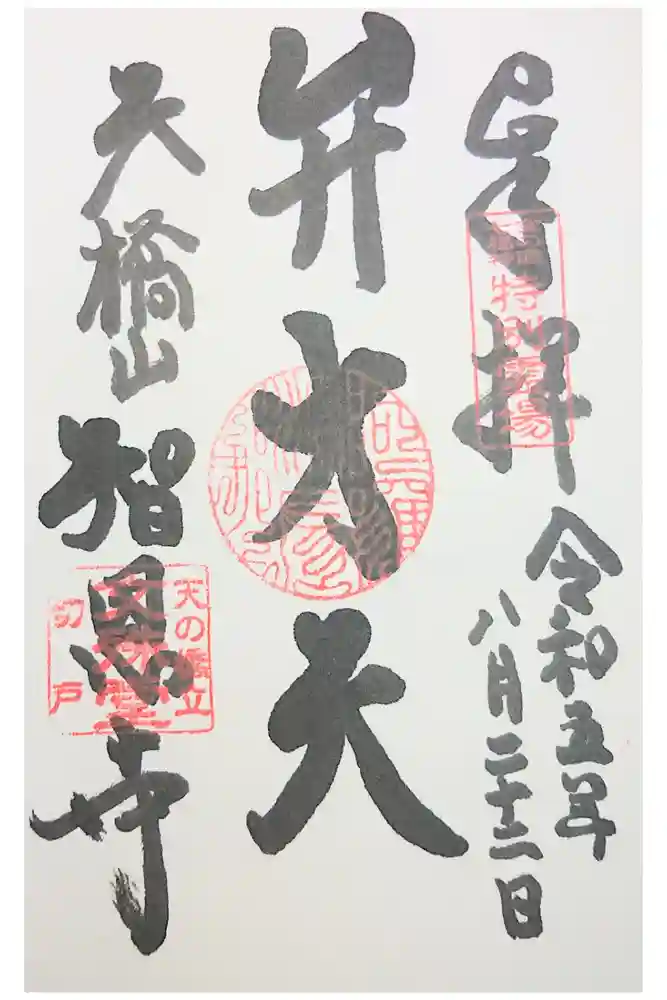 奉拝
特別霊場
令和五年
八月二十二日
弁才天
天橋山
智恩寺
天の橋立
文殊堂
切戸